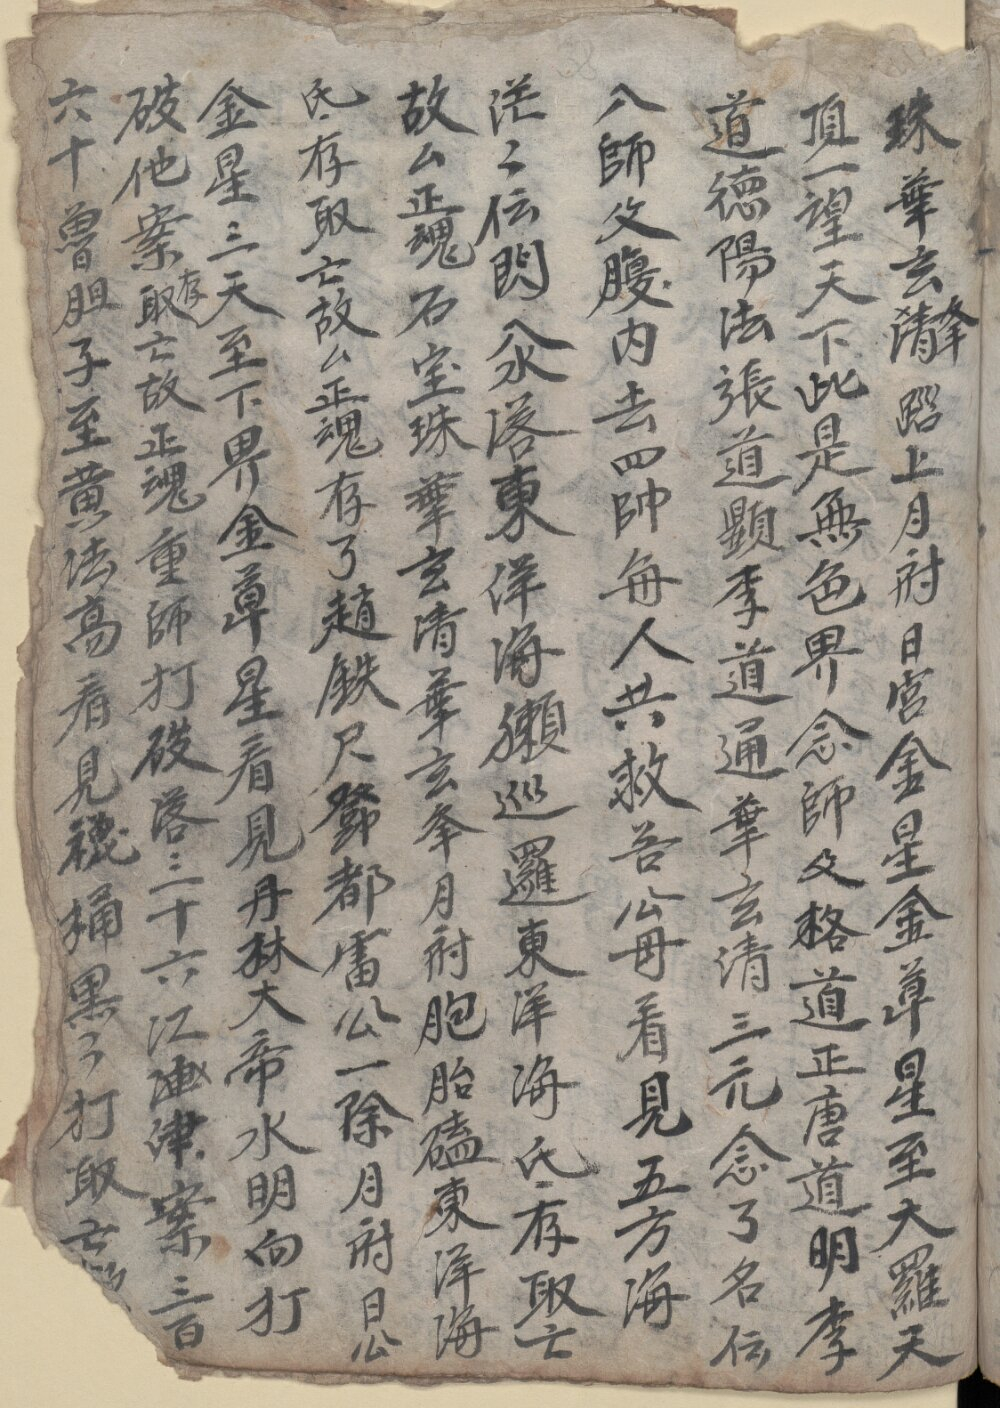 珠華玄清峯 上月府日宮金星金尊星至大羅天
頂一望天下此是無色界念師父格道正唐道明李
道德陽法張道顕李道通華玄清三元念了名伝
八師父腹内去四帥每人共救吾公毋看見五方海
茫〻伝閃 落東洋海獺巡邏東洋海底存取亡
故厶正魂石室珠華玄清華玄峯月府胞胎磕東洋海
底存取亡故厶正魂存了趙鉄尺鄧都雷公一除月府日公
金星三天至下界金尊星看見丹林大帝水明向打
破他案存取亡故正魂重師打破落三十六江 律案三百
六十曽胆子至黄法高看見 桶黒了打取亡